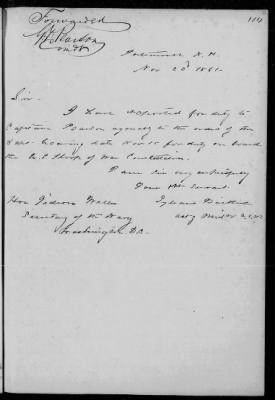 Forwarded
G. F. Pearson
114
Portsmouth N.H.
Nov 23d 1861
Sir,
I have reported for duty to
Captain Pearson agreeably to the orders of the
Dept. bearing date Nov 15 for duty on board
the U.S. Sloop of War Constellation.
I am Sir very respectfully
Your Obt Servant
Hon Gideon Welles
Secretary of the Navy
Washington D.C.